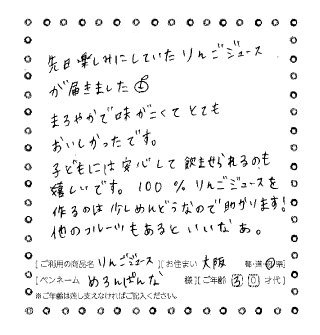 先日楽しみにしていたりんごジュース
が届きました
まろやかで味がこくてとても
おいしかったです。
子どもには安心して飲ませられるのも
嬉しいです。100%りんごジュースを
作るのは少しめんどうなので助かります!
他のフルーツもあるといいなぁ。
[ご利用の商品名 りんごジュース ][お住まい 大阪 都・道・府・県]
[ペンネーム めろんぱんな 様][ご年齢 30才代]
※ご年齢は差し支えなければご記入ください。